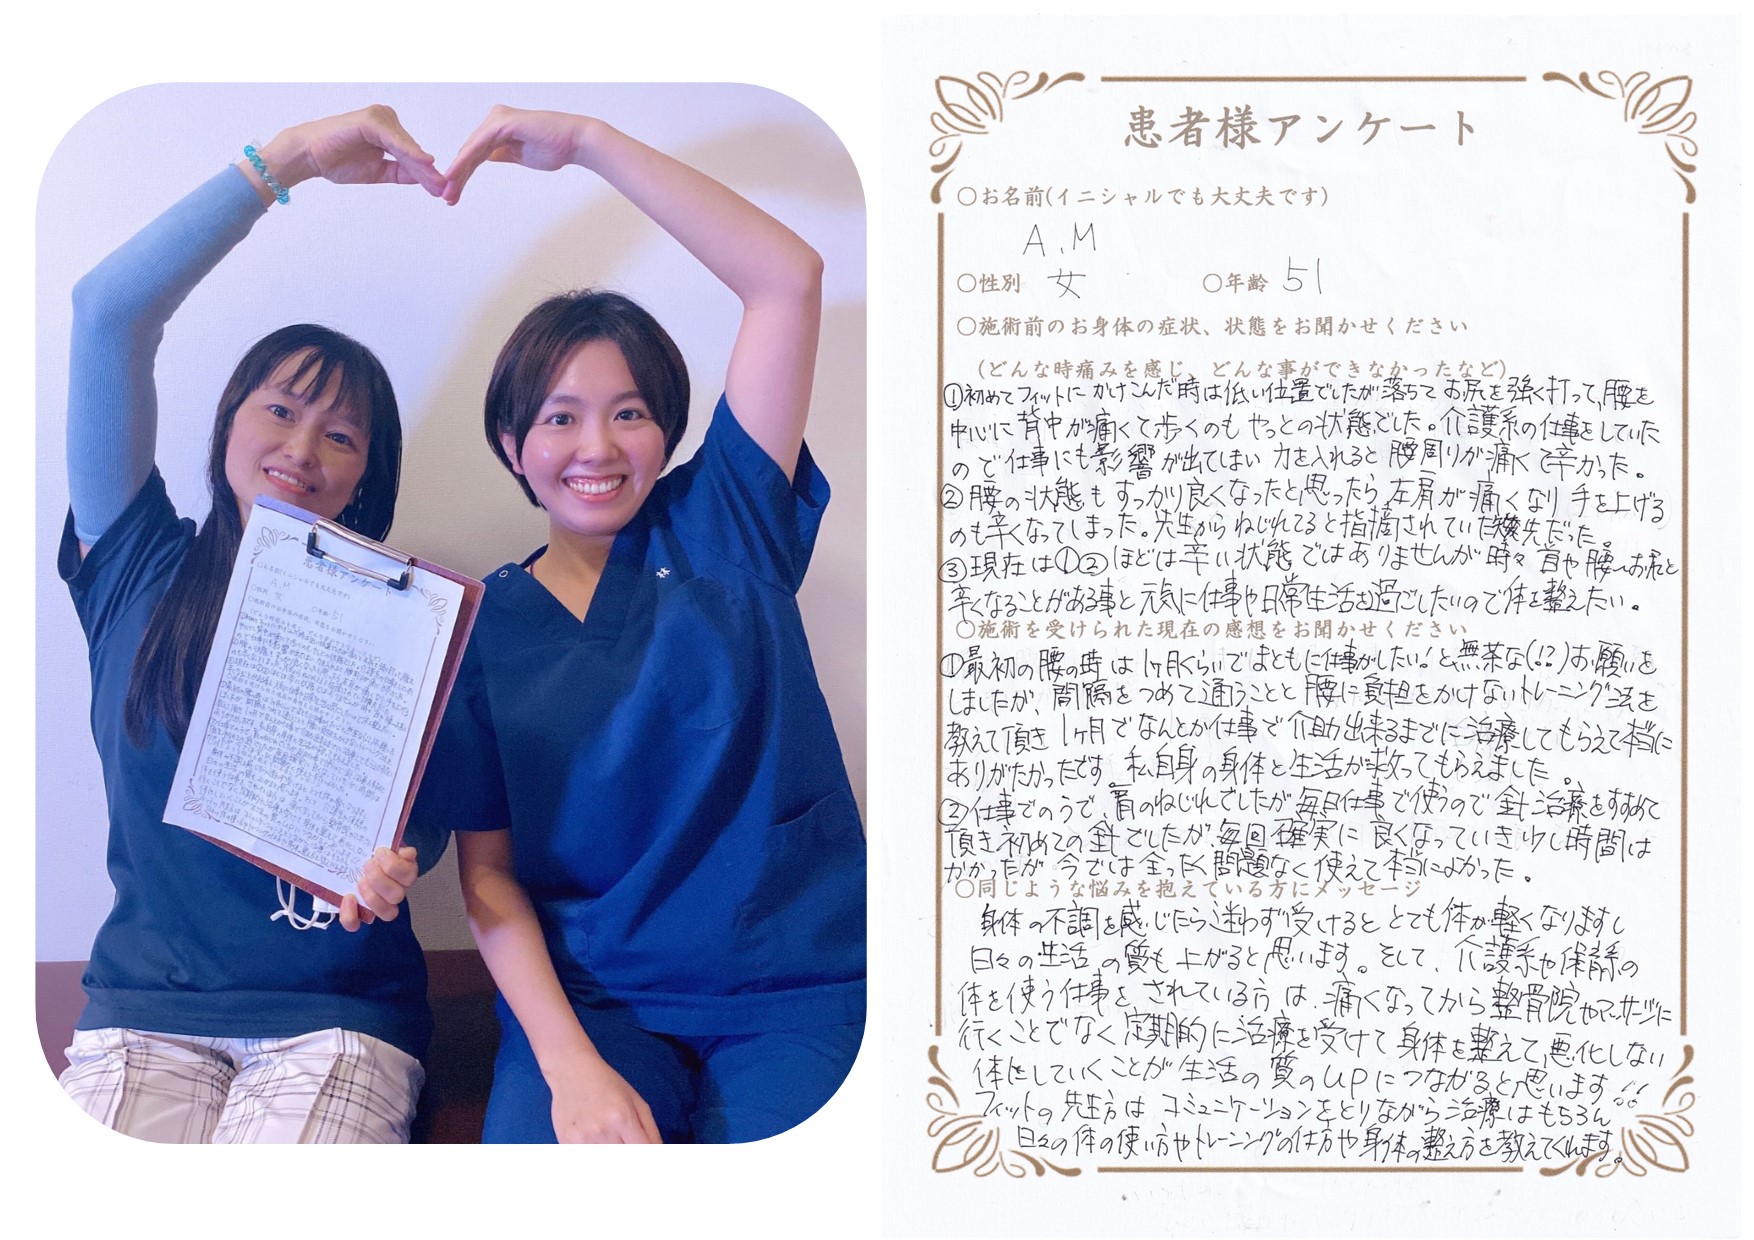 患者様アンケート
○お名前(イニシャルでも大丈夫です)
A.M
○性別 女 ○年齢 51
○施術前のお身体の症状、状態をお聞かせください
(どんな時痛みを感じ、どんな事ができなかったなど)
①初めてフィットにかけこんだ時は低い位置でしたが落ちてお尻を強く打って、腰を
中心に背中が痛くて歩くのもやっとの状態でした。介護系の仕事をしていた
ので仕事にも影響が出てしまい力を入れると腰周りが痛くて辛かった。
②腰の状態もすっかり良くなったと思ったら左肩が痛くなり手を上げる
のも辛くなってしまった。先生からねじれてると指摘されていた矢先だった。
③現在は①②ほどは辛い状態ではありませんが時々首や腰〜お尻と
辛くなることがある事と元気に仕事や日常生活も過ごしたいので体を整えたい。
○施術を受けられた現在の感想をお聞かせください
①最初の腰の時は1ヶ月くらいでまともに仕事がしたい!と無茶な(!?)お願いを
しましたが、間隔をつめて通うことと腰に負担をかけないトレーニング法を
教えて頂き1ヶ月でなんとか仕事で介助出来るまでに治療してもらえて本当に
ありがたかったです。私自身の身体と生活が救ってもらえました。
②仕事でのうで、肩のねじれでしたが毎日仕事で使うので針治療をすすめて
頂き初めての針でしたが、毎回確実に良くなっていき少し時間は
かかったが今では全ったく問題なく使えて本当によかった。
○同じような悩みを抱えている方にメッセージ
身体の不調を感じたら迷わず受けるととても体が軽くなりますし
日々の生活の質も上がると思います。そして、介護系や保育系の
体を使う仕事をされている方は、痛くなってから整骨院やマッサージに
行くことでなく定期的に治療を受けて身体を整えて、悪化しない
体にしていくことが生活の質のupにつながると思います!!
フィットの先生方はコミュニケーションをとりながら治療はもちろん
日々の体の使い方やトレーニングの仕方や身体の整え方を教えてくれます。